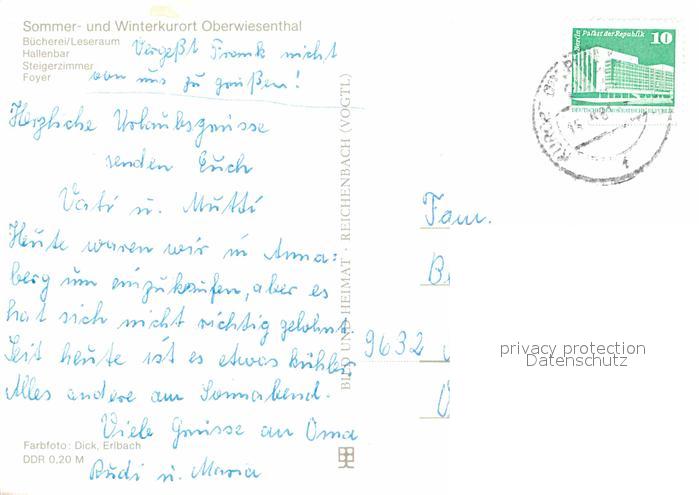 Sommer- und Winterkurort Oberwiesenthal
Bücherei/Leseraum
Hallenbar
Steigerzimmer
Foyer
Vergeßt Frank nicht
von uns zu grüßen!
Herzliche Urlaubsgrüsse
senden Euch
Vati u. Mutti
Heute waren wir in Anna=
berg um einzukaufen, aber es
hat sich nicht richtig gelohnt.
Seit heute ist es etwas kühler
Alles andere am Sonnabend.
Viele Grüsse an Oma
Rudi u. Maria
Farbfoto: Dick, Erlbach
DDR 0,20 M
BILD UND HEIMAT · REICHENBACH (VOGTL)
Berlin Palast der Republik 10
DEUTSCHE DEMOKRATISCHE REPUBLIK
Fam.
B
9632
privacy protection
Datenschutz